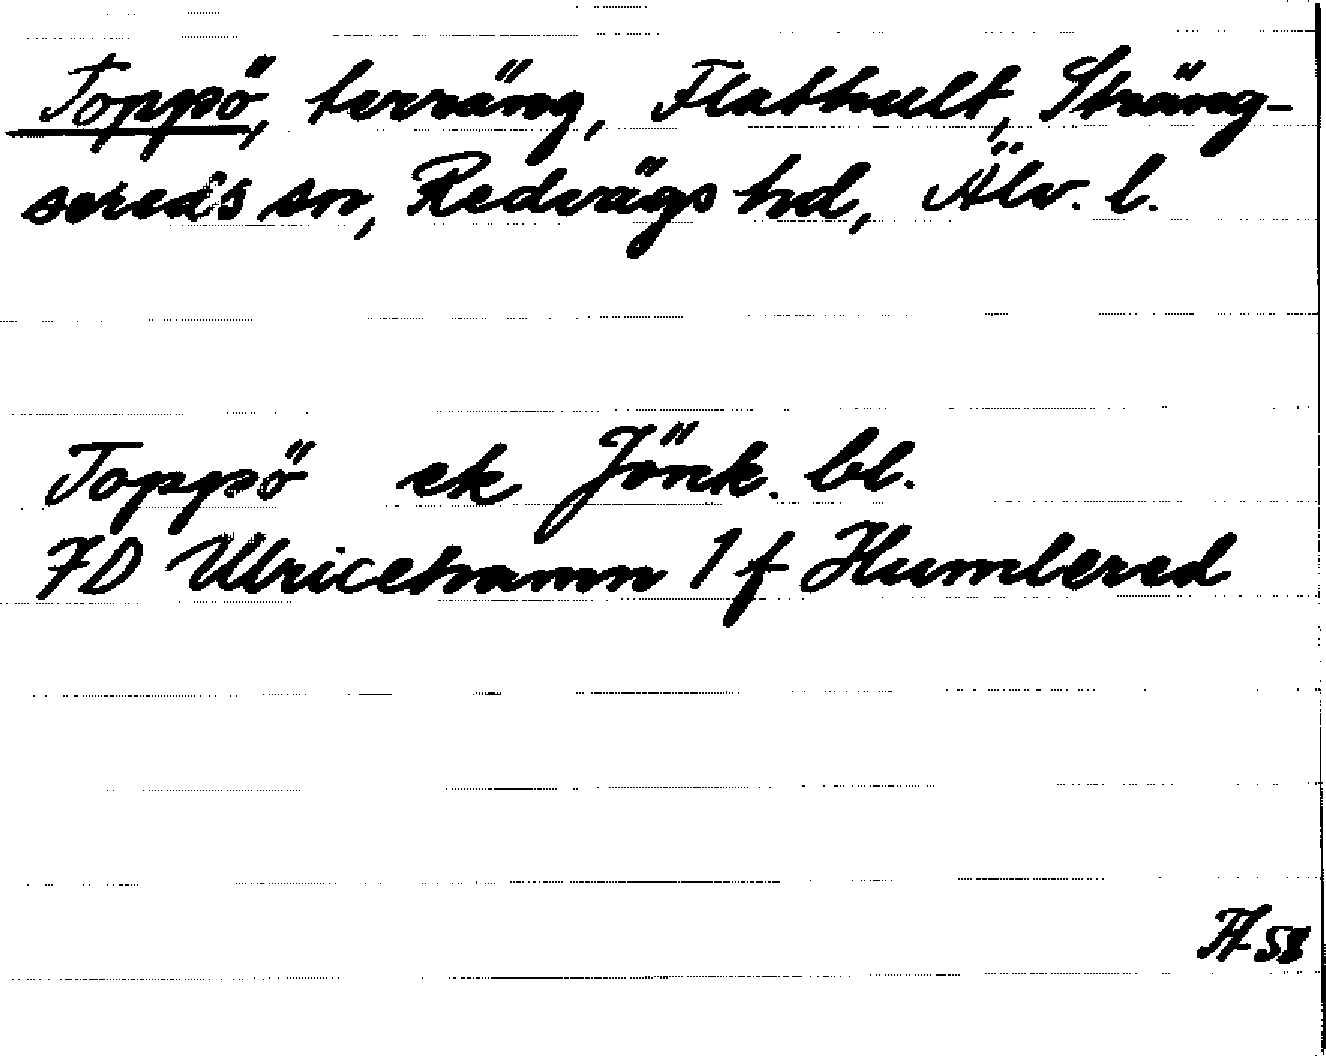 Toppö, terräng, Flathult, Sträng-
sereds sn, Redvägs hd, Älv. l.
Toppö ek Jönk. bl.
7D Ulricehamn 1 f Humlered